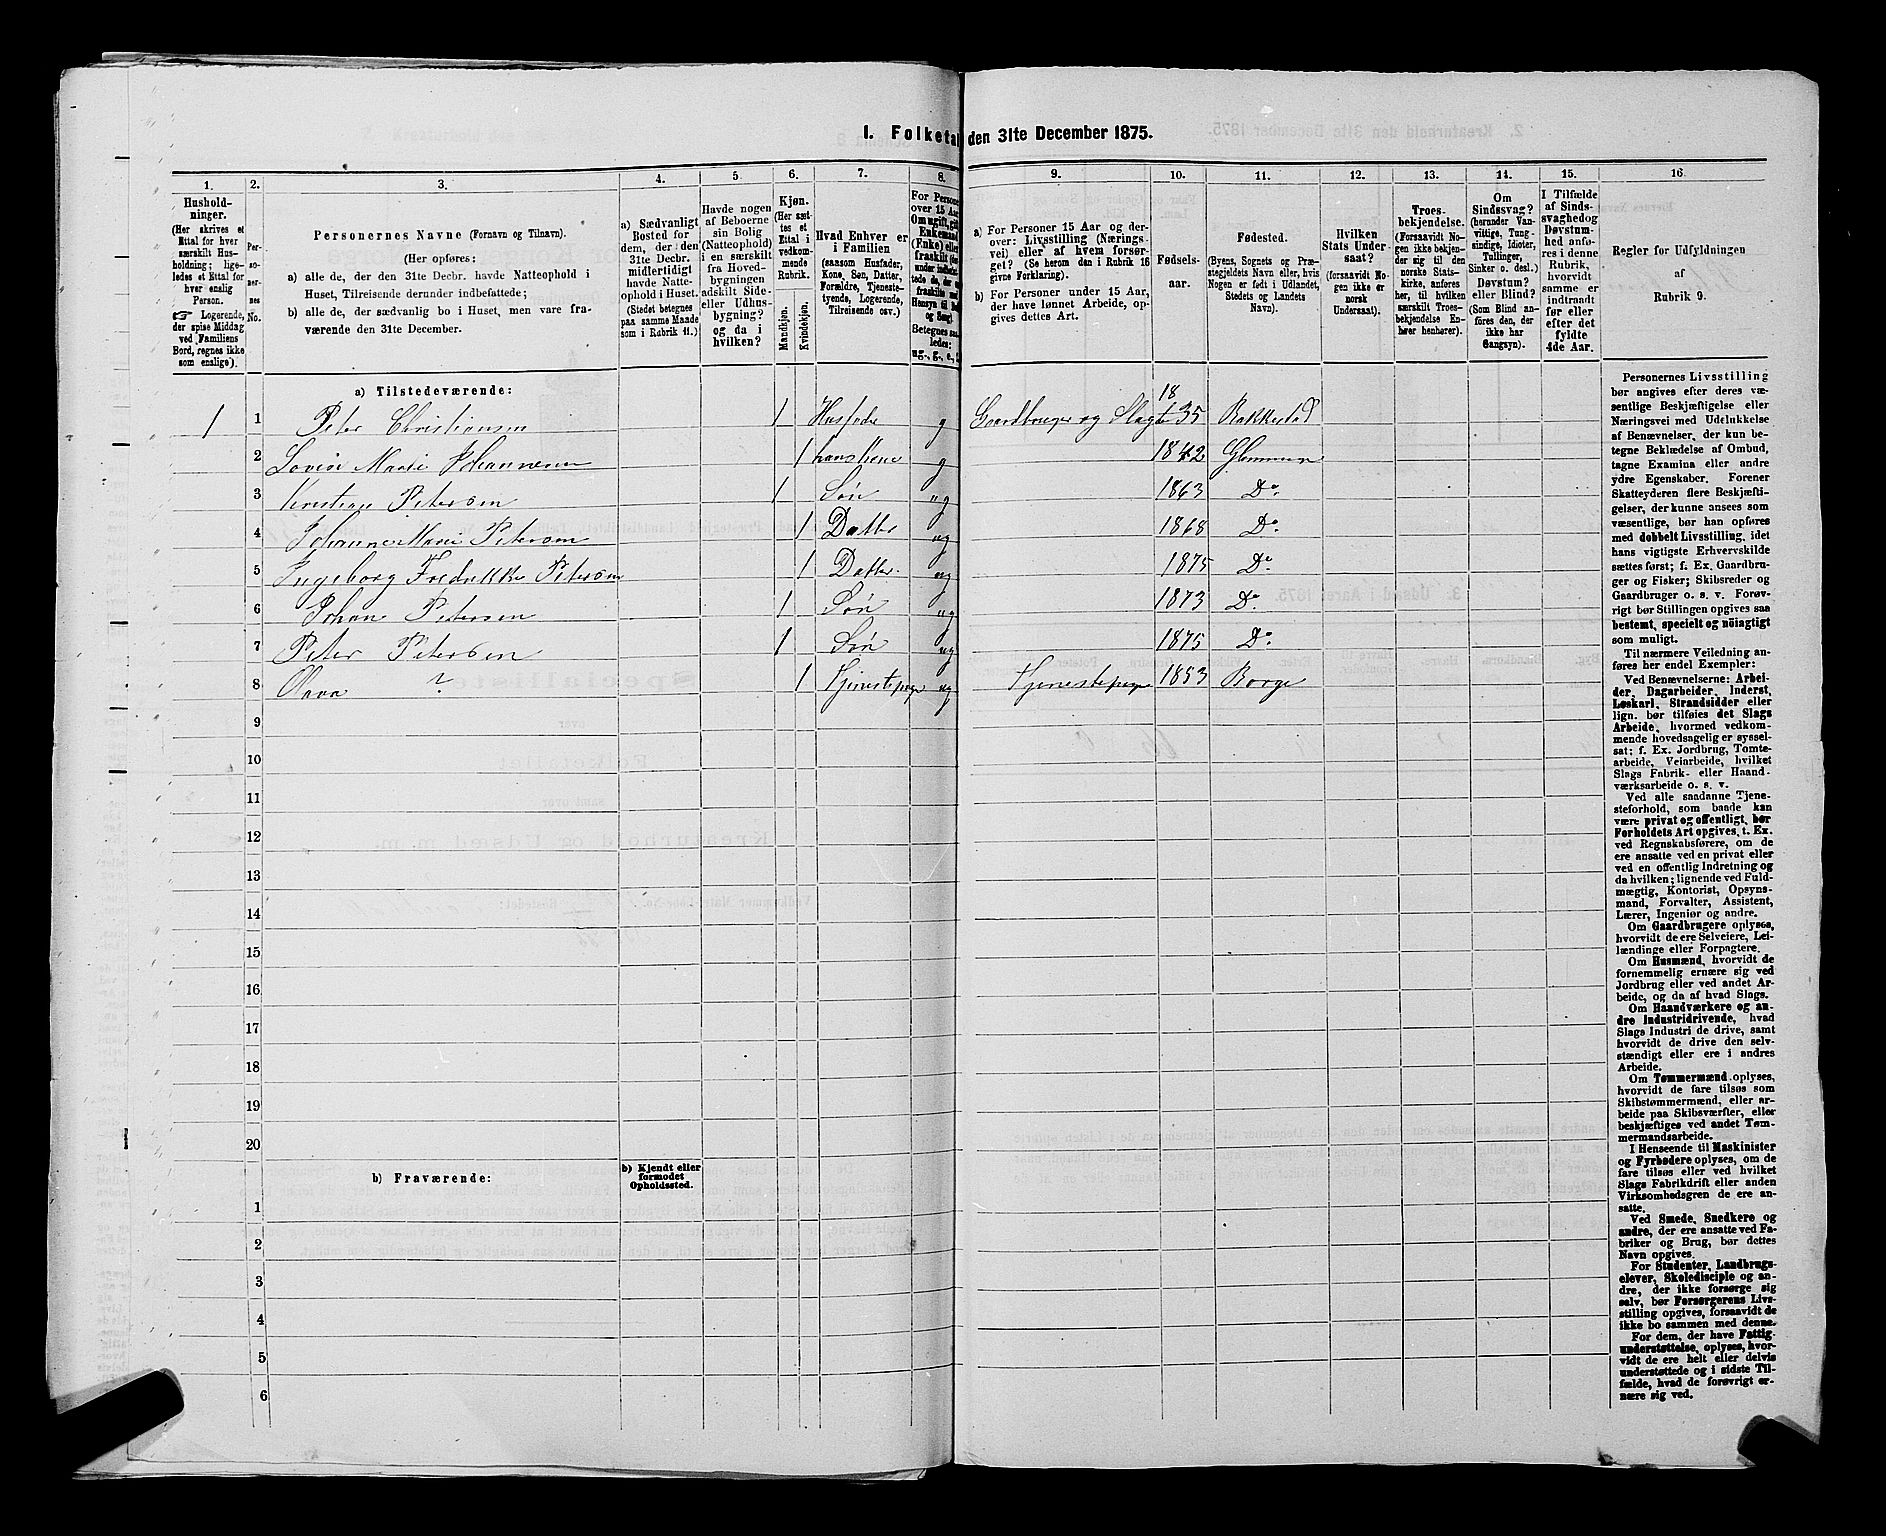 I. Folketal den 31te December 1875.
1. 2. 3. 4. 5. 6. 7. 8. 9. 10. 11. 12. 13. 14. 15. 16.
Hushold-
ninger.
(Her skrives et
Ettal for hver
særskilt Hus-
holdning; lige-
ledes et Ettal for
hver enslig
Person.
☞ Logerende,
der spise Middag
ved Familiens
Bord, regnes ikke
som enslige).
Per-
so-
ner-
nes
No.
Personernes Navne (Fornavn og Tilnavn).
(Her opføres:
a) alle de, der den 31te Decbr. havde Natteophold i
Huset, Tilreisende derunder indbefattede;
b) alle de, der sædvanlig bo i Huset, men vare fra-
værende den 31te December.
a) Sædvanligt
Bosted for
dem, der den
31te Decbr.
midlertidigt
havde Natte-
ophold i Huset.
(Stedet betegnes
paa samme Maade
som i Rubrik 11.)
Havde nogen
af Beboerne
sin Bolig
(Natteophold)
i en særskilt
fra Hoved-
bygningen
adskilt Side-
eller Udhus-
bygning?
og da i
hvilken?
Kjøn.
(Her sæt-
tes et
Ettal i
vedkom-
mende
Rubrik.
Mandkjøn.
Kvindekjøn.
Hvad Enhver er
i Familien
(saasom Husfader,
Kone, Søn, Datter,
Forældre, Tjeneste-
tyende, Logerende,
Tilreisende osv.).
For Persone
over 15 Aa
Om ugift, gif
Enkemand
(Enke) elle
fraskilt
Betegnes saa-
ledes:
ug., g., e.,
a) For Personer 15 Aar og der-
over: Livsstilling (Nærings-
vei) eller af hvem forsør-
get? (Se herom den i Rubrik 16
givne Forklaring).
b) For Personer under 15 Aar,
der have lønnet Arbeide, op-
gives dettes Art.
Fødsels-
aar.
Fødested.
(Byens, Sognets og Præ-
stegjeldets Navn eller, hvis
Nogen er født i Udlandet,
Stedets og Landets
Navn).
Hvilken
Stats Under-
saat?
(forsaavidt No-
gen ikke er
norsk
Undersaat).
Troes-
bekjendelse.
(Forsaavidt No-
gen ikke bekjen-
der sig til den
norske Stats-
kirke, anføres
her, til hvilken
særskilt Troes-
bekjendelse En-
hver henhører).
Om
Sindssvag?
(herunder Van-
vittige, Tung-
sindige, Idioter,
Tullinger,
Sinker o. desl.)
Døvstum?
eller Blind?
(Som Blind an-
føres den, der
ikke har
Gangsyn).
I Tilfælde
af Sinds-
svaghed og
Døvstum-
hed anfø-
res i denne
Rubrik,
hvorvidt
samme er
indtraadt
før eller
efter det
fyldte
4de Aar.
Regler for Udfyldningen
af
Rubrik 9.
a) Tilstedeværende:
1 1 Peter Christiansen 1 Husfader g Gaardbruger og Slagt 1835 Rakkestad
2 Lovise Marie Johannesen 1 hans Kone g 1842 Glemmen
3 Kristian Petersen 1 Søn ug 1863 Do.
4 Johanne Marie Petersen 1 Datter ug 1868 Do.
5 Ingeborg Fredrikke Petersen 1 Datter. ug 1875 Do.
6 Johan Petersen 1 Søn ug 1873 Do.
7 Peter Petersen 1 Søn ug 1875 Do.
8 Olava ? 1 Tjenestepige ug Tjenestepige 1853 Borge
9
10
11
12
13
14
15
16
17
18
19
20
b) Fraværende:
b) Kjendt eller
formodet
Opholdssted.
1
2
3
4
5
6
Personernes Livsstilling
bør angives efter deres væ-
sentlige Beskjæftigelse eller
Næringsvei med Udelukkelse
af Benævnelser, der kun be-
tegne Beklædelse af Ombud,
tagne Examina eller andre
ydre Egenskaber. Forener
Skatteyderen flere Beskjæfti-
gelser, der kunne ansees som
væsentlige, bør han opføres
med dobbelt Livsstilling, idet
hans vigtigste Erhvervskilde
sættes først; f. Ex. Gaardbru-
ger og Fisker; Skibsreder og
Gaardbruger o. s. v. Forøv-
rigt bør Stillingen opgives saa
bestemt, specielt og nöiagtigt
som muligt.
Til nærmere Veiledning an-
føres her endel Exempler:
Ved Benævnelserne: Arbei-
der, Dagarbeider, Inderst,
Løskarl, Strandsidder eller
lign. bør tilføies det Slags
Arbeide, hvormed vedkom-
mende hovedsagelig er syssel-
sat; f. Ex. Jordbrug, Tomte-
arbeide, Veiarbeide, hvilket
Slags Fabrik- eller Haand-
værksarbeide o. s. v.
Ved alle saadanne Tjene-
steforhold, som baade kan
være privat og offentligt, bør
Forholdets Art opgives, t. Ex.
ved Regnskabsførere, om de
ere ansatte ved en privat eller
ved en offentlig Indretning og
da hvilken; lignende ved Fuld-
mægtig, Kontorist, Opsyns-
mand, Forvalter, Assistent,
Lærer, Ingeniør og andre.
Om Gaardbrugere oplyses,
hvorvidt de ere Selveiere, Lei-
lændinge eller Forpagtere.
Om Husmænd, hvorvidt de
fornemmelig ernære sig ved
Jordbrug eller ved andet Ar-
beide, og da af hvad Slags.
Om Haandværkere og an-
dre Industridrivende, hvad
Slags Industri de drive, samt
hvorvidt de drive den selv-
stændigt eller ere i andres
Arbeide.
Om Tømmermænd oplyses,
hvorvidt de fare tilsøs som
Skibstømmermænd, eller ar-
beide paa Skibsværfter, eller
beskjæftiges ved andet Tøm-
mermandsarbeide.
I Henseende til Maskinister
og Fyrbødere oplyses, om de
fare tilsøs eller ved hvilket
Slags Fabrikdrift eller anden
Virksomhedsgren de ere an-
satte.
Ved Smede, Snedkere og
andre, der ere ansatte ved Fa-
briker og Brug, bør dettes
Navn opgives.
For Studenter, Landbrugs-
elever, Skoledisciple og an-
dre, der ikke forsørge sig
selv, bør Forsørgerens Livs-
stilling opgives, forsaavidt de
ikke bo sammen med denne.
For dem, der have Fattig-
understøttelse, oplyses, hvor-
vidt de ere helt eller delvis
understøttede og i sidste Til-
fælde, hvad de forøvrigt er-
nære sig ved.